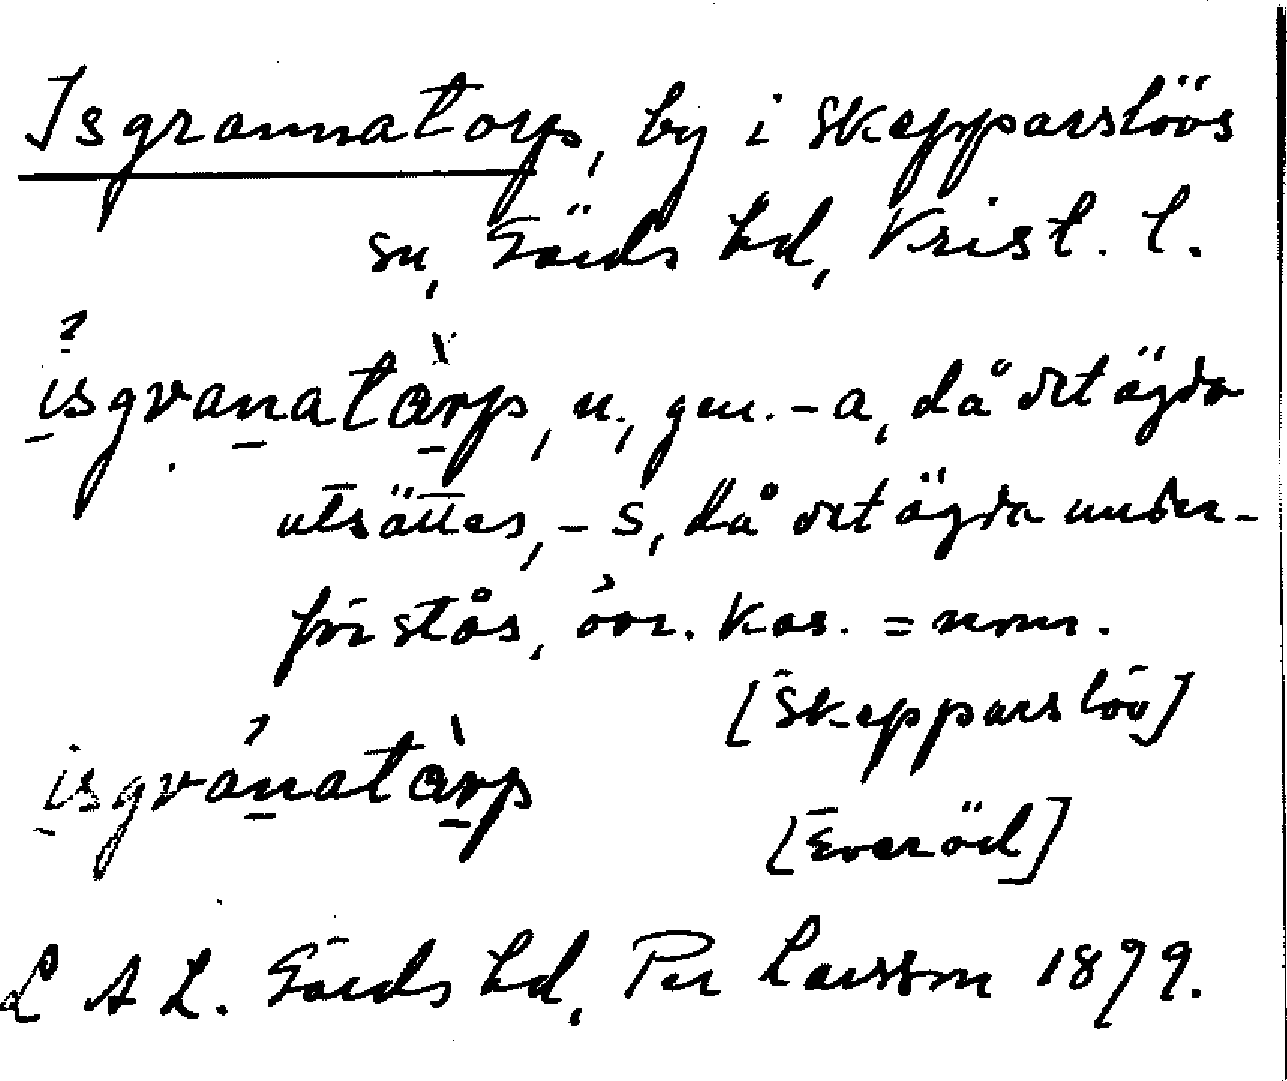 Isgrannatorp, by i Skepparslövs
sn, Gärds hd, Krist. l.
isgranatàrp, n., gen. -a, då det ägda
utsättes, -s, då det ägda under-
förstås, övr. kas. = nom.
[Skepparslöv]
isgránatàrp
[Everöd]
L A L. Gärds hd, Per Larsson 1879.